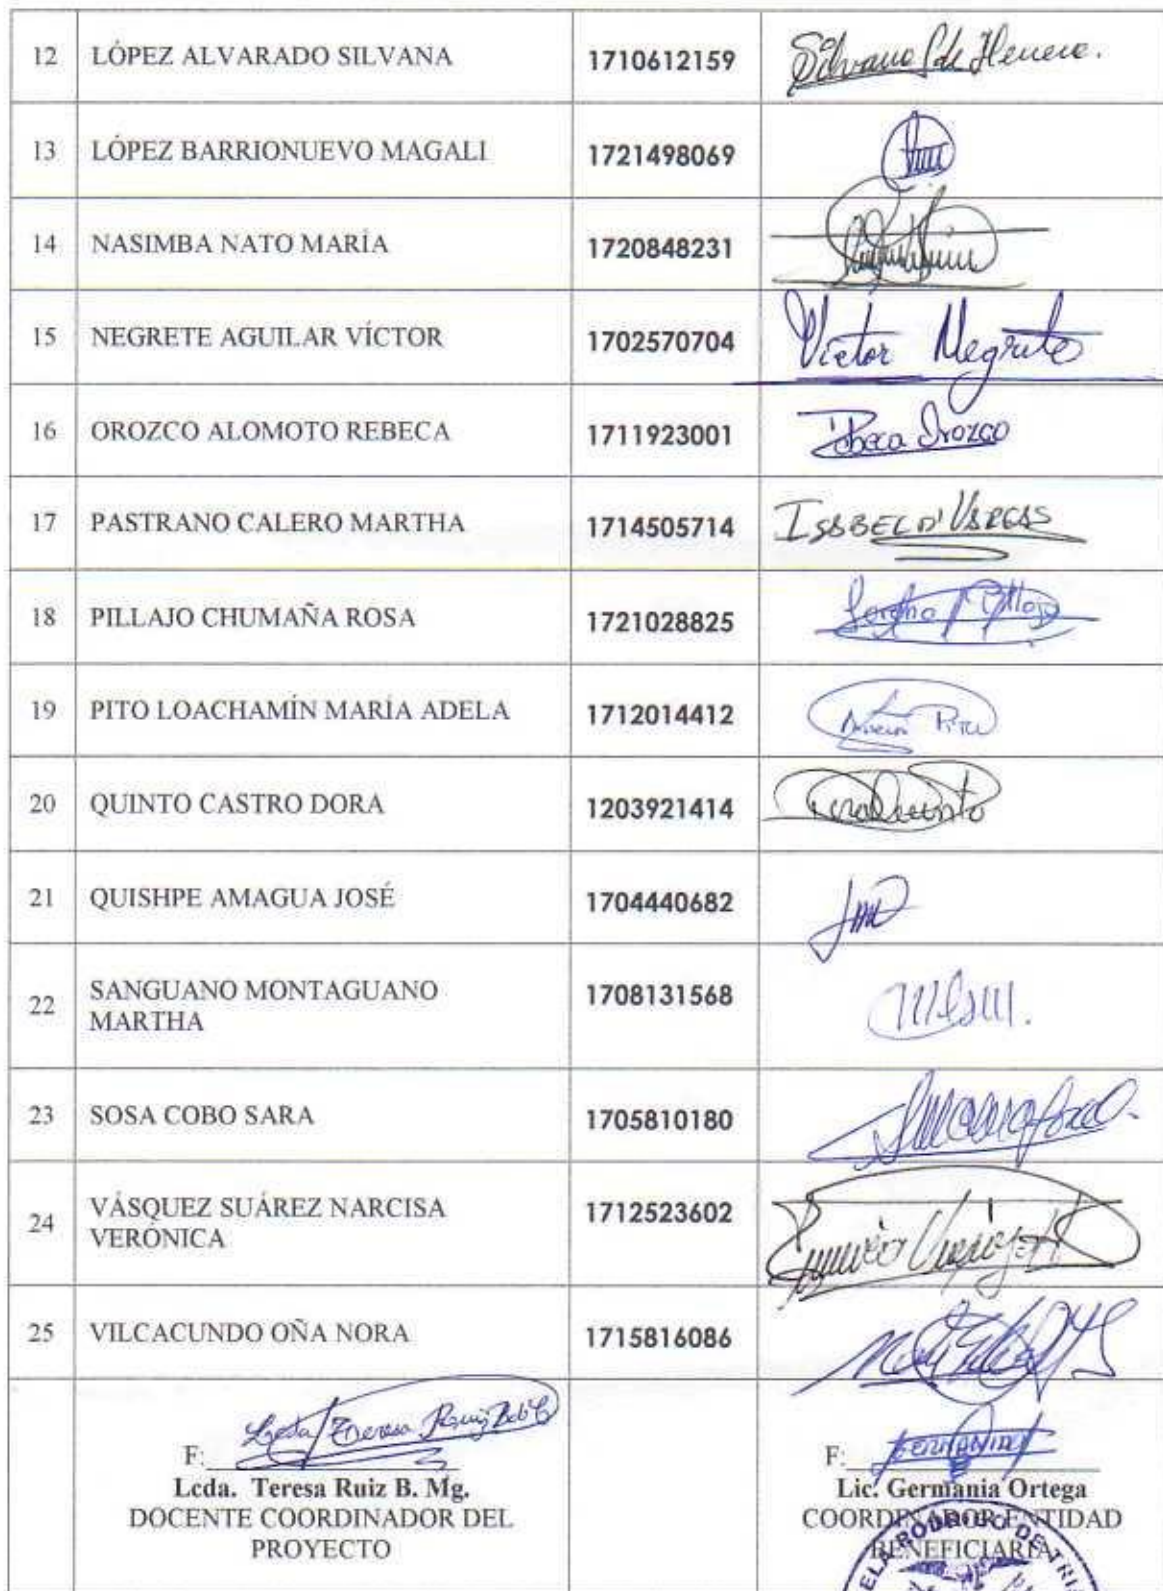 12 LÓPEZ ALVARADO SILVANA 1710612159 Silvana
13 LÓPEZ BARRIONUEVO MAGALI 1721498069
14 NASIMBA NATO MARÍA 1720848231
15 NEGRETE AGUILAR VÍCTOR 1702570704 Victor Negrete
16 OROZCO ALOMOTO REBECA 1711923001 Rebeca Orozco
17 PASTRANO CALERO MARTHA 1714505714 ISABEL D' VARGAS
18 PILLAJO CHUMAÑA ROSA 1721028825 Pillajo
19 PITO LOACHAMÍN MARÍA ADELA 1712014412
20 QUINTO CASTRO DORA 1203921414 Dora Quinto
21 QUISHPE AMAGUA JOSÉ 1704440682
22 SANGUANO MONTAGUANO
MARTHA 1708131568
23 SOSA COBO SARA 1705810180
24 VÁSQUEZ SUÁREZ NARCISA
VERÓNICA 1712523602
25 VILCACUNDO OÑA NORA 1715816086
F: Lcda Teresa Ruiz
Lcda. Teresa Ruiz B. Mg.
DOCENTE COORDINADOR DEL
PROYECTO
F:
Lic. Germania Ortega
COORDINADOR ENTIDAD
BENEFICIARIA
ELA RODRIGO DE TRI